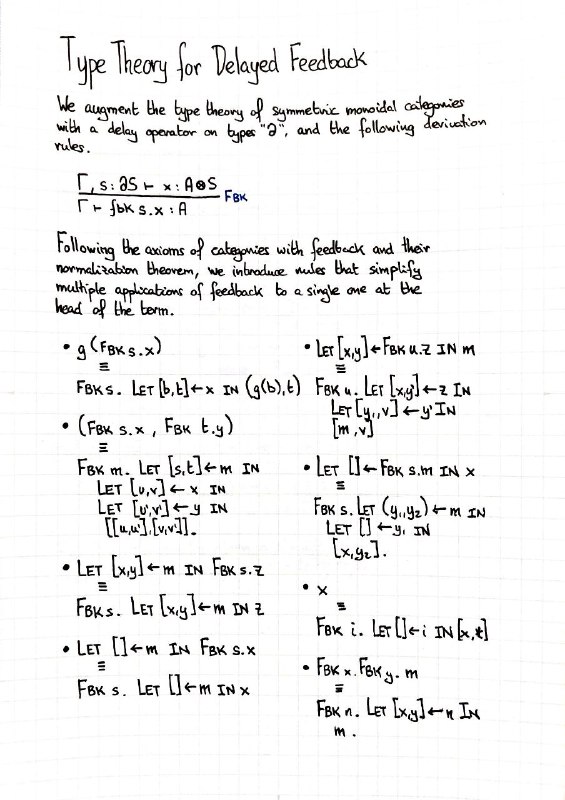 Type Theory for Delayed Feedback
We augment the type theory of symmetric monoidal categories
with a delay operator on types "∂", and the following derivation
rules.
Γ, s : ∂S ⊢ x : A⊗S
Γ ⊢ fbk s.x : A
FBK
Following the axioms of categories with feedback and their
normalization theorem, we introduce rules that simplify
multiple applications of feedback to a single one at the
head of the term.
• g (FBK s.x)
≡
FBK s. LET [b,t] ← x IN (g(b),t)
• (FBK s.x , FBK t.y)
≡
FBK m. LET [s,t] ← m IN
LET [u,v] ← x IN
LET [u',v'] ← y IN
[[u,u'],[v,v']].
• LET [x,y] ← m IN FBK s.z
≡
FBK s. LET [x,y] ← m IN z
• LET [] ← m IN FBK s.x
≡
FBK s. LET [] ← m IN x
• LET [x,y] ← FBK u.z IN m
≡
FBK u. LET [x,y'] ← z IN
LET [y,,v] ← y' IN
[m,v]
• LET [] ← FBK s.m IN x
≡
FBK s. LET (y₁,y₂) ← m IN
LET [] ← y₁ IN
[x,y₂].
• x
≡
FBK i. LET [] ← i IN [x,t]
• FBK x. FBK y. m
≡
FBK n. LET [x,y] ← n IN
m .